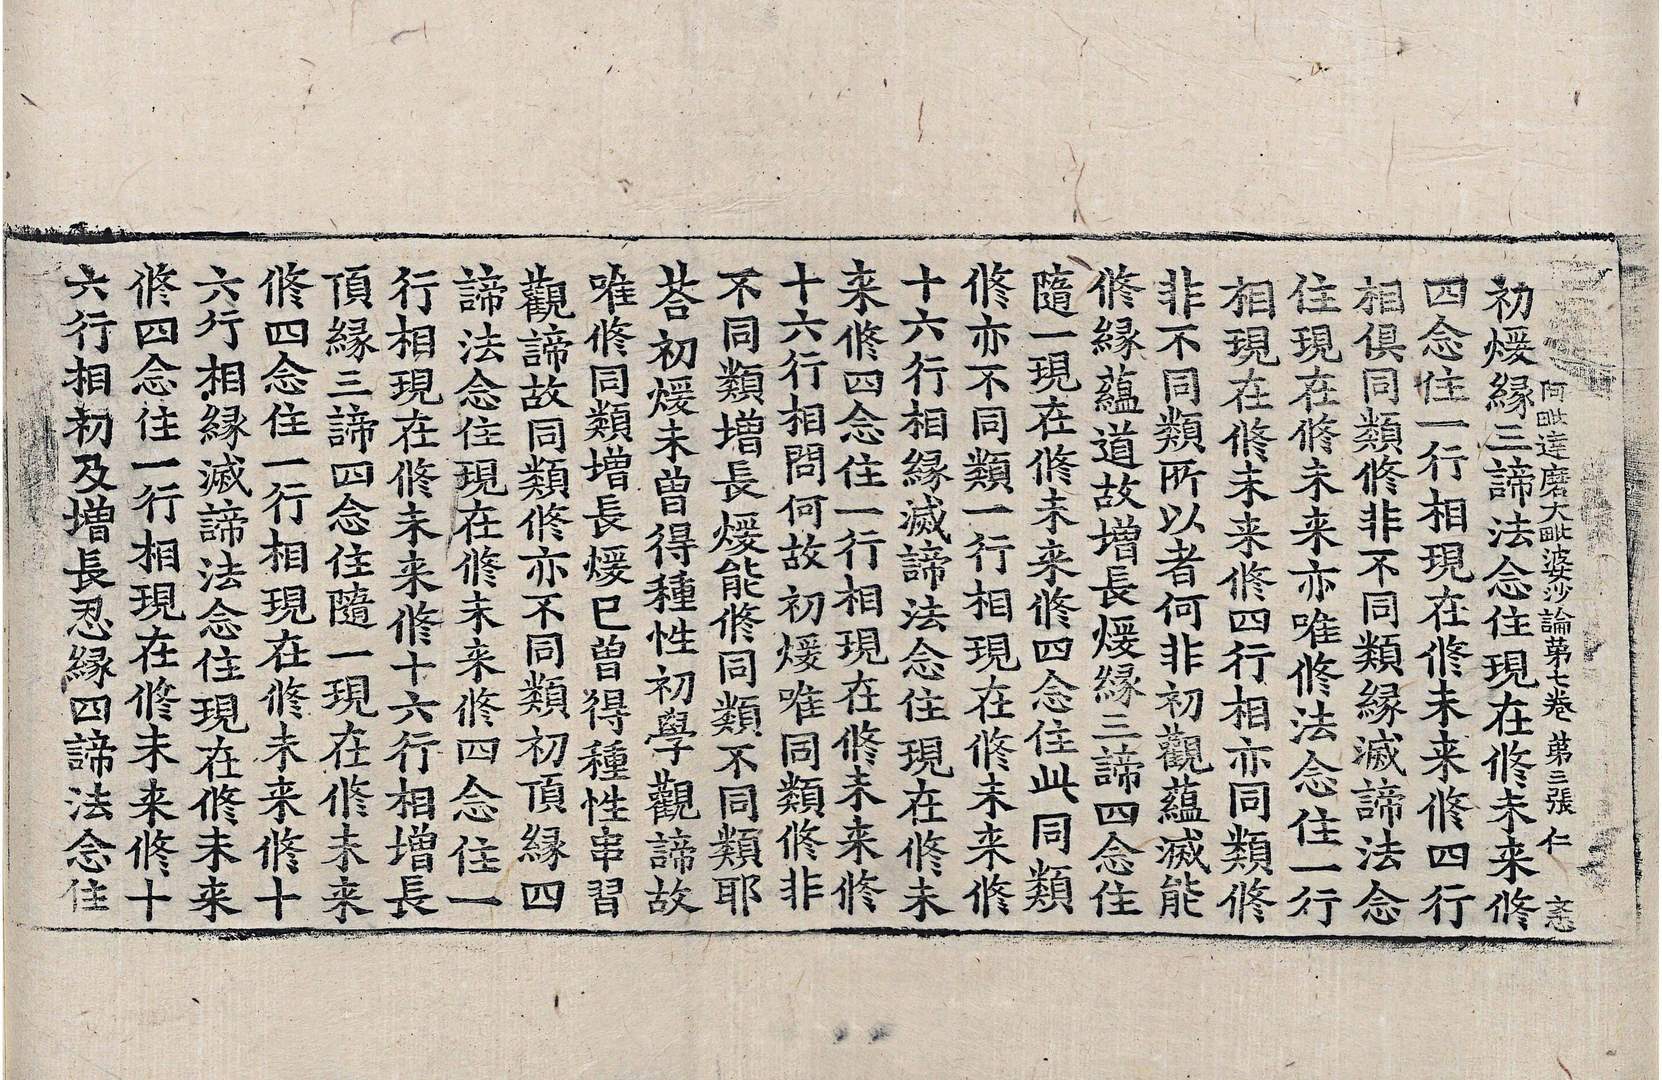 阿毗達磨大毗婆沙論苐七卷 苐三張 仁
初煖緣三諦法念住現在修未来修
四念住一行相現在修未来修四行
相俱同類修非不同類緣滅諦法念
住現在修未来亦唯修法念住一行
相現在修未来修四行相亦同類修
非不同類所以者何非初觀蘊滅能
修緣蘊道故增長煖緣三諦四念住
隨一現在修未来修四念住此同類
修亦不同類一行相現在修未来修
十六行相緣滅諦法念住現在修未
来修四念住一行相現在修未来修
十六行相問何故初煖唯同類修非
不同類增長煖能修同類不同類耶
荅初煖未曾得種性初學觀諦故
唯修同類增長煖已曾得種性串習
觀諦故同類修亦不同類初頂緣四
諦法念住現在修未来修四念住一
行相現在修未来修十六行相增長
頂緣三諦四念住隨一現在修未来
修四念住一行相現在修未来修十
六行相緣滅諦法念住現在修未来
修四念住一行相現在修未来修十
六行相初及增長忍緣四諦法念住